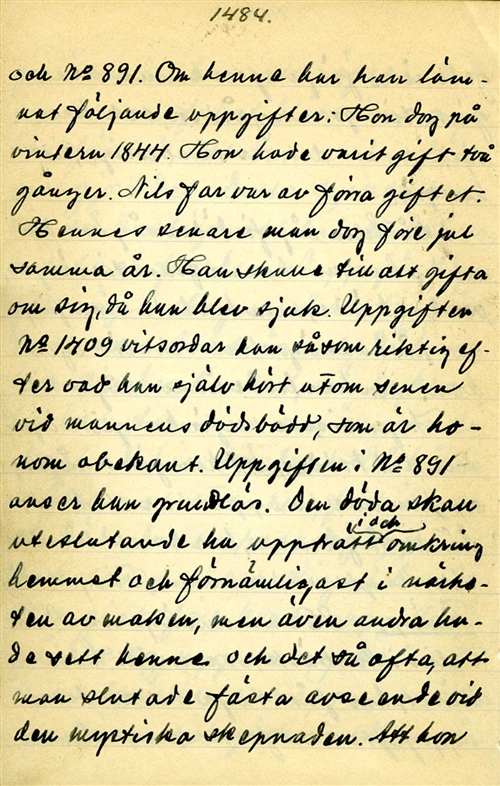 1484.
och No 891. Om henne har han läm-
nat följande uppgifter: Hon dog på
vintern 1844. Hon hade varit gift två
gånger. Nils far var av förra giftet.
Hennes senare man dog före jul
samma år. Han skulle till att gifta
om sig, då han blev sjuk. Uppgiften
No 1409 vitsordar han såsom riktig ef-
ter vad han själv hört utom scenen
vid mannens dödsbädd, som är ho-
nom obekant. Uppgiften i No 891
anser han grundlös. Den döda skall
uteslutande ha uppträtt i och omkring
hemmet och förnämligast i närhe-
ten av maken, men även andra ha-
de sett henne och det så ofta, att
man slutade fästa avseende vid
den mystiska skepnaden. Att hon